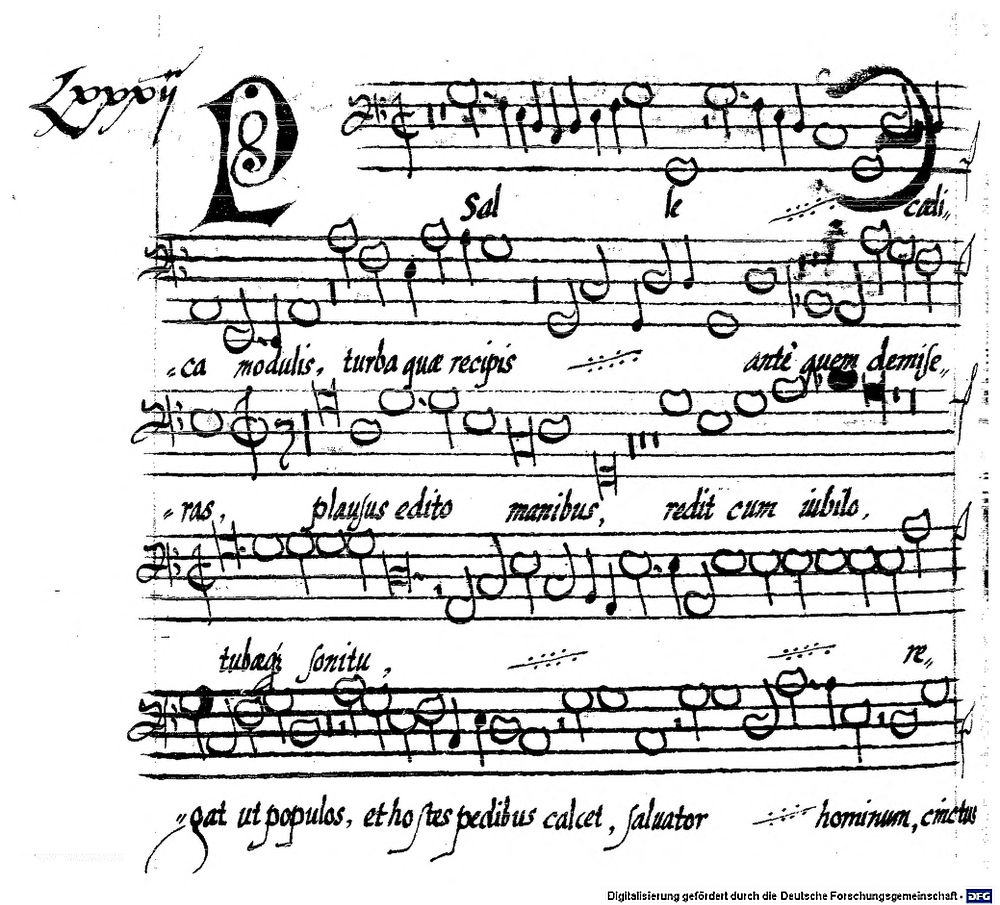 Lxxxij
PSal le cadi„
„ca modulis, turba quæ recipis antè quem demise„
„ras, plausus edito manibus, redit cum iubilo,
tubæq; sonitu, re„
„gat ut populos, et hostes pedibus calcet, saluator hominum, cinctus
Digitalisierung gefördert durch die Deutsche Forschungsgemeinschaft - DFG